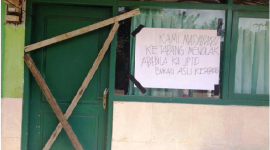 KAMI MASYARAKAT
KETAPANG MENOLAK
APABILA KA. UPTD
BUKAN ASLI KETAPANG